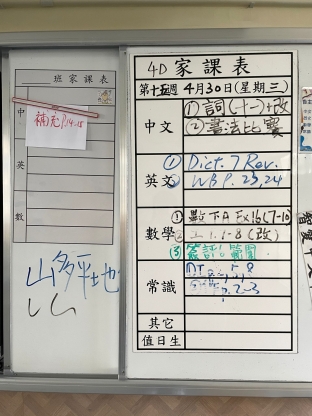 班家課表
中
補充P.14-15
英
數
山多平地
4D 家課表
第十五週 4月30日(星期三)
中文
① 詞(十一)+改
② 書法比賽
英文
① Dict. 7 Rev.
② WB P. 23,24
數學
① 數下A Ex16(7-10)
1-8 (改)
③ 簽評
常識
其它
值日生